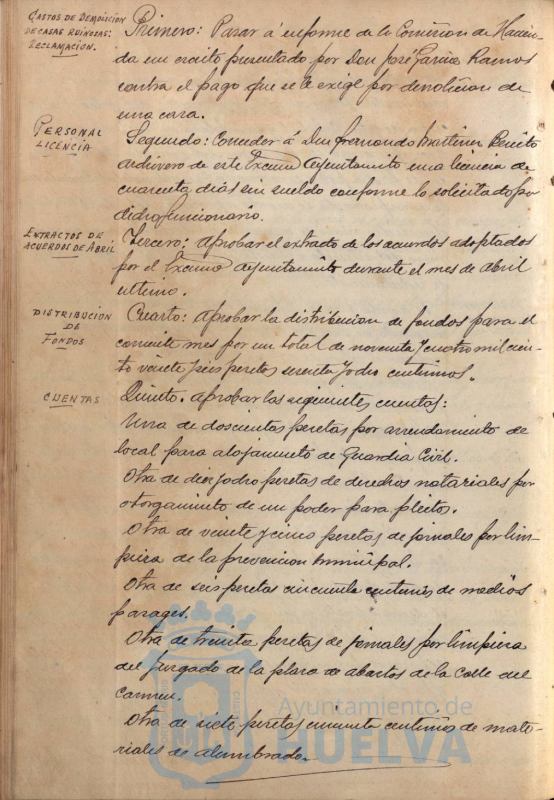 GASTOS DE DEMOLICION
DE CASAS RUINOSAS:
RECLAMACION.
Primero: Pasar á informe de la Comision de Hacien-
da un escrito presentado por Don José Garcia Ramos
contra el pago que se le exige por demolicion de
una casa.
PERSONAL
LICENCIA
Segundo: Conceder á Don Fernando Martinez Benito
archivero de este Excmo Ayuntamiento una licencia de
cuarenta dias sin sueldo conforme lo solicitado por
dicho funcionario.
EXTRACTOS DE
ACUERDOS DE ABRIL
Tercero: Aprobar el extracto de los acuerdos adoptados
por el Excmo Ayuntamiento durante el mes de abril
ultimo.
DISTRIBUCION
DE
FONDOS
Cuarto: Aprobar la distribucion de fondos para el
corriente mes por un total de noventa y cuatro mil cien-
to veinte y seis pesetas sesenta y ocho centimos.
CUENTAS
Quinto. Aprobar las siguientes cuentas:
Una de doscientas pesetas por arrendamiento de
local para alojamiento de Guardia Civil.
Otra de diez y ocho pesetas de derechos notariales por
otorgamiento de un poder para pleitos.
Otra de veinte y cinco pesetas de jornales por lim-
pieza de la prevencion municipal.
Otra de seis pesetas cincuenta centimos de medios
parages.
Otra de treinta pesetas de jornales por limpieza
del juzgado de la plaza de abastos de la calle del
Carmen.
Otra de siete pesetas cincuenta centimos de mate-
riales de alumbrado.
Ayuntamiento de
HUELVA